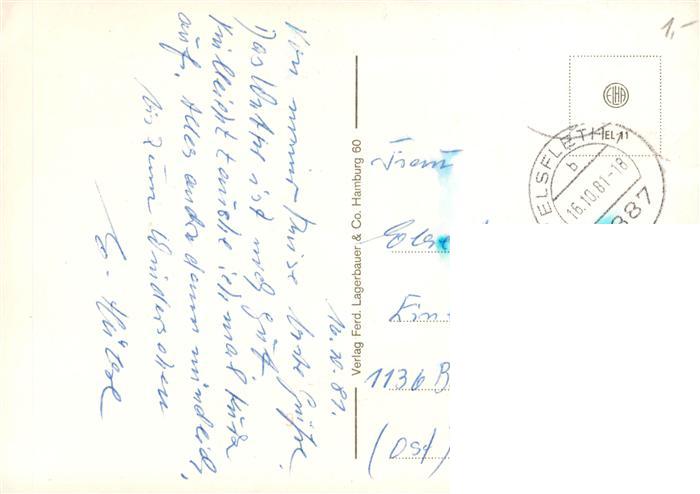 16.10.81.
Von meiner Reise liebe Grüße.
Das Wetter ist noch gut.
Vielleicht tauche ich mal kurz
auf. Alles andere dann mündlich,
bis zum Wiedersehen
Verlag Ferd. Lagerbauer & Co. Hamburg 60
1,-
ELHA
EL 11
ELSFLETH
b
16.10.81-18
887
Frau
1136 B
(Ost)